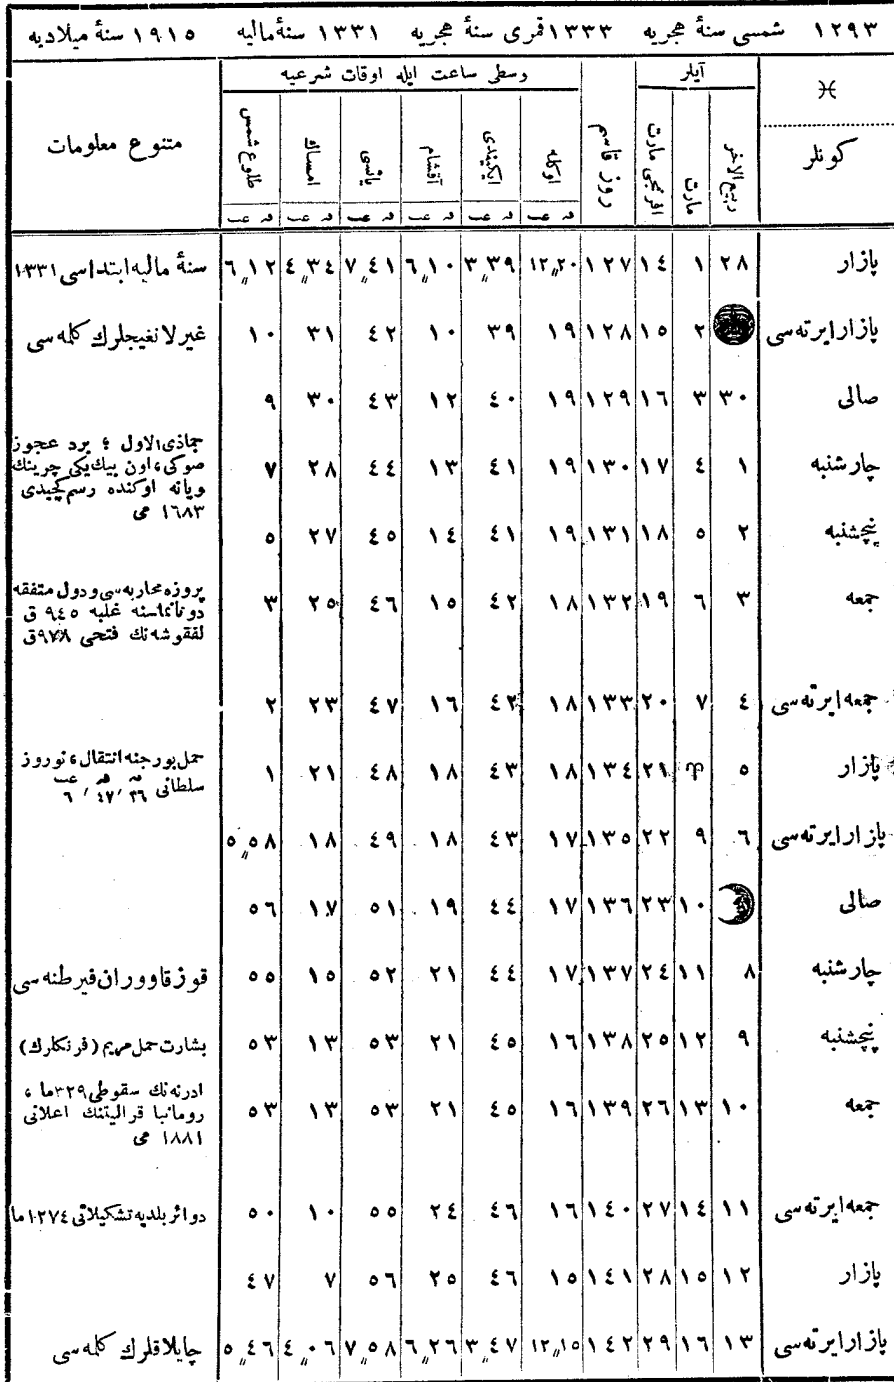 ١٢٩٣ شمسى سنۀ هجريه ١٣٣٣ قمرى سنۀ هجريه ١٣٣١ سنۀ ماليه ١٩١٥ سنۀ ميلاديه
♓ آيلر وسطى ساعت ايله اوقات شرعيه
كونلر ربيع الاخر مارت افرنجى مارت روز قاسم اوكله ايكيندى آقشام ياتسى امساك طلوع شمس متنوع معلومات
دقـ عـ دقـ عـ دقـ عـ دقـ عـ دقـ عـ دقـ عـ
پازار ٢٨ ١ ١٤ ١٢٧ ١٢,٢٠ ٣,٣٩ ٦,١٠ ٧,٤١ ٤,٣٤ ٦,١٢ سنۀ ماليه ابتداسى ١٣٣١
پازار ايرتەسى ٢ ١٥ ١٢٨ ١٩ ٣٩ ١٠ ٤٢ ٣١ ١٠ غيرلانغيجلرك كلمەسى
صالى ٣٠ ٣ ١٦ ١٢٩ ١٩ ٤٠ ١٢ ٤٣ ٣٠ ٩
چارشنبه ١ ٤ ١٧ ١٣٠ ١٩ ٤١ ١٣ ٤٤ ٢٨ ٧ جماذى الاول ؛ برد عجوز
صوكى، اون بيك يكيچرينك
ويانه اوكنده رسم كچيدى
١٦٨٣ مى
پنچشنبه ٢ ٥ ١٨ ١٣١ ١٩ ٤١ ١٤ ٤٥ ٢٧ ٥
جمعه ٣ ٦ ١٩ ١٣٢ ١٨ ٤٢ ١٥ ٤٦ ٢٥ ٣ پروزه محاربەسى ودول متفقه
دونانماسنه غلبه ٩٤٥ ق
لفقوشەنك فتحى ٩٧٨ ق
جمعه ايرتەسى ٤ ٧ ٢٠ ١٣٣ ١٨ ٤٢ ١٦ ٤٧ ٢٣ ٢
پازار ٥ ♈ ٢١ ١٣٤ ١٨ ٤٣ ١٨ ٤٨ ٢١ ١ حمل بورجنه انتقال؛ نوروز
سلطانى ٣٦ ٤٧ ٦
پازار ايرتەسى ٦ ٩ ٢٢ ١٣٥ ١٧ ٤٣ ١٨ ٤٩ ١٨ ٥,٥٨
صالى ١٠ ٢٣ ١٣٦ ١٧ ٤٤ ١٩ ٥١ ١٧ ٥٦
چارشنبه ٨ ١١ ٢٤ ١٣٧ ١٧ ٤٤ ٢١ ٥٢ ١٥ ٥٥ قوزقاووران فيرطنەسى
پنچشنبه ٩ ١٢ ٢٥ ١٣٨ ١٦ ٤٥ ٢١ ٥٣ ١٣ ٥٣ بشارت حمل مريم (فرنكلرك)
جمعه ١٠ ١٣ ٢٦ ١٣٩ ١٦ ٤٥ ٢١ ٥٣ ١٣ ٥٣ ادرنەنك سقوطى ٣٢٩ ما ؛
رومانيا قراليتنك اعلانى
١٨٨١ مى
جمعه ايرتەسى ١١ ١٤ ٢٧ ١٤٠ ١٦ ٤٦ ٢٤ ٥٥ ١٠ ٥٠ دوائر بلديه تشكيلاتى ١٢٧٤ ما
پازار ١٢ ١٥ ٢٨ ١٤١ ١٥ ٤٦ ٢٥ ٥٦ ٧ ٤٧
پازار ايرتەسى ١٣ ١٦ ٢٩ ١٤٢ ١٢,١٥ ٣,٤٧ ٦,٢٦ ٧,٥٨ ٤,٠٦ ٥,٤٦ چايلاقلرك كلمەسى